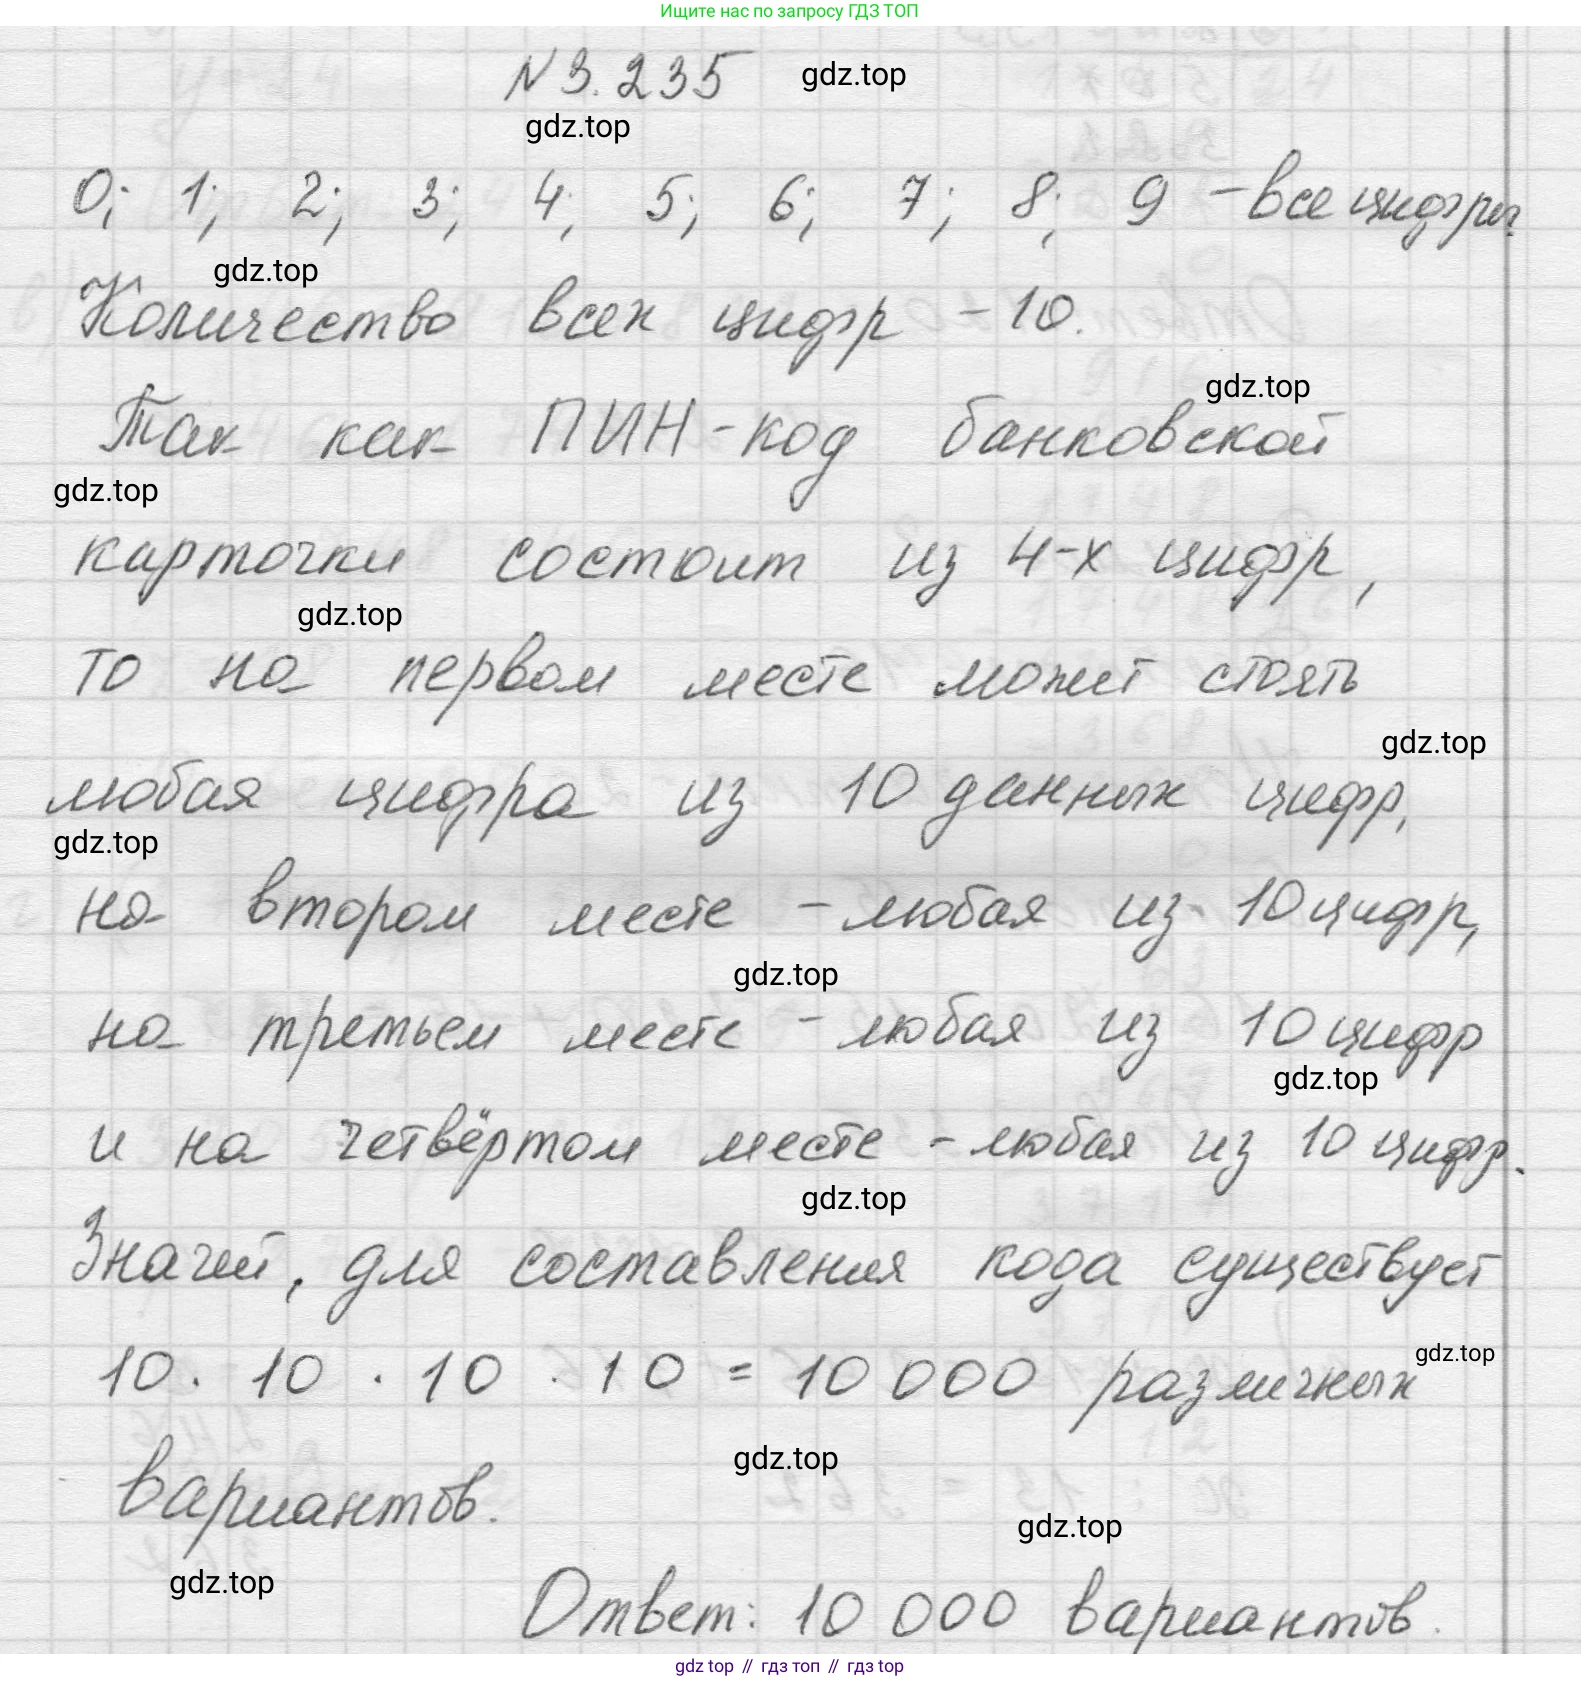 Ищите нас по запросу ГДЗ ТОП
N 3.235 gdz.top
gdz.top
0; 1; 2; 3; 4; 5; 6; 7; 8; 9 - все цифры.
gdz.top
Количество всех цифр - 10.
gdz.top
Так как ПИН-код банковской
gdz.top
карточки состоит из 4-х цифр,
gdz.top
то на первом месте может стоять
gdz.top
любая цифра из 10 данных цифр,
gdz.top
на втором месте - любая из 10 цифр,
gdz.top
на третьем месте - любая из 10 цифр
gdz.top
и на четвёртом месте - любая из 10 цифр.
gdz.top
Значит, для составления кода существует
gdz.top
10 · 10 · 10 · 10 = 10 000 различных
gdz.top
вариантов.
gdz.top
gdz.top
Ответ: 10 000 вариантов.
gdz top // гдз топ // гдз top